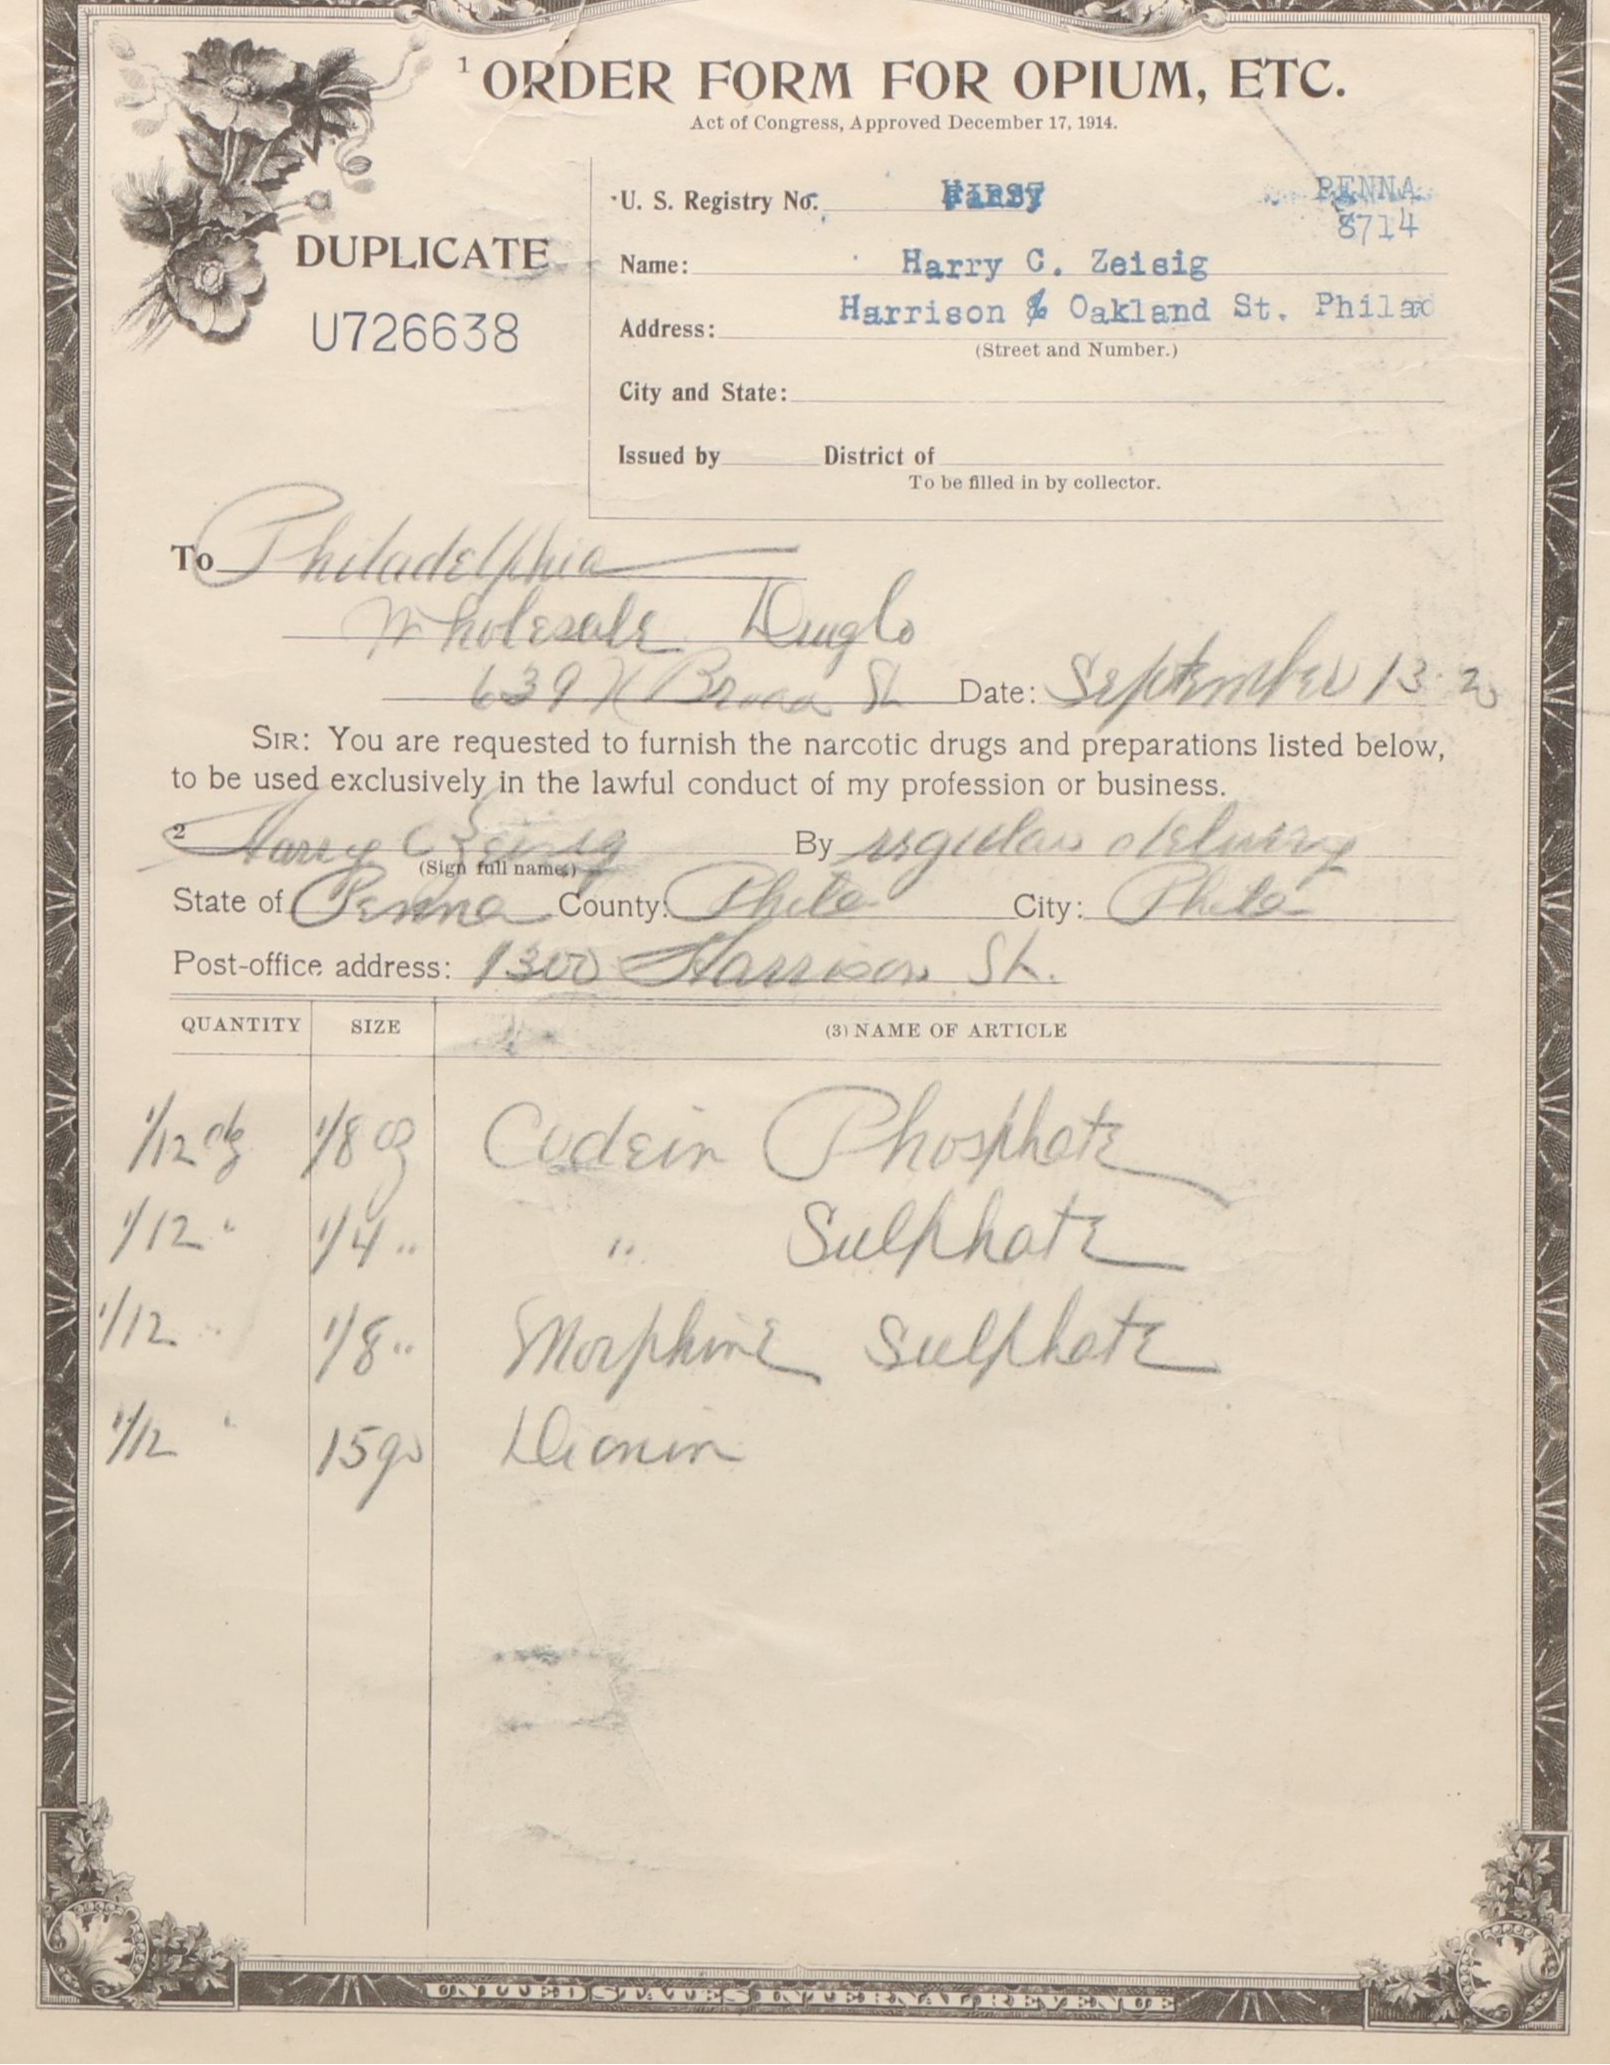 1 ORDER FORM FOR OPIUM, ETC.
Act of Congress, Approved December 17, 1914.
DUPLICATE
U726638
U. S. Registry No. PENNA.
8714
Name: Harry C. Zeisig
Address: Harrison & Oakland St. Philad
(Street and Number.)
City and State:
Issued by District of
To be filled in by collector.
To Philadelphia
Wholesale Drug Co
639 N Broad St Date: September 13
SIR: You are requested to furnish the narcotic drugs and preparations listed below,
to be used exclusively in the lawful conduct of my profession or business.
2 Harry C Zeisig By regular delivery
(Sign full name.)
State of Penna County: Phila City: Phila
Post-office address: 1300 Harrison St.
QUANTITY SIZE (3) NAME OF ARTICLE
1/12 dz 1/8 oz Codein Phosphate
1/12 " 1/4 " " Sulphate
1/12 " 1/8 " Morphine Sulphate
1/12 " 15 gr Dionin
UNITED STATES INTERNAL REVENUE